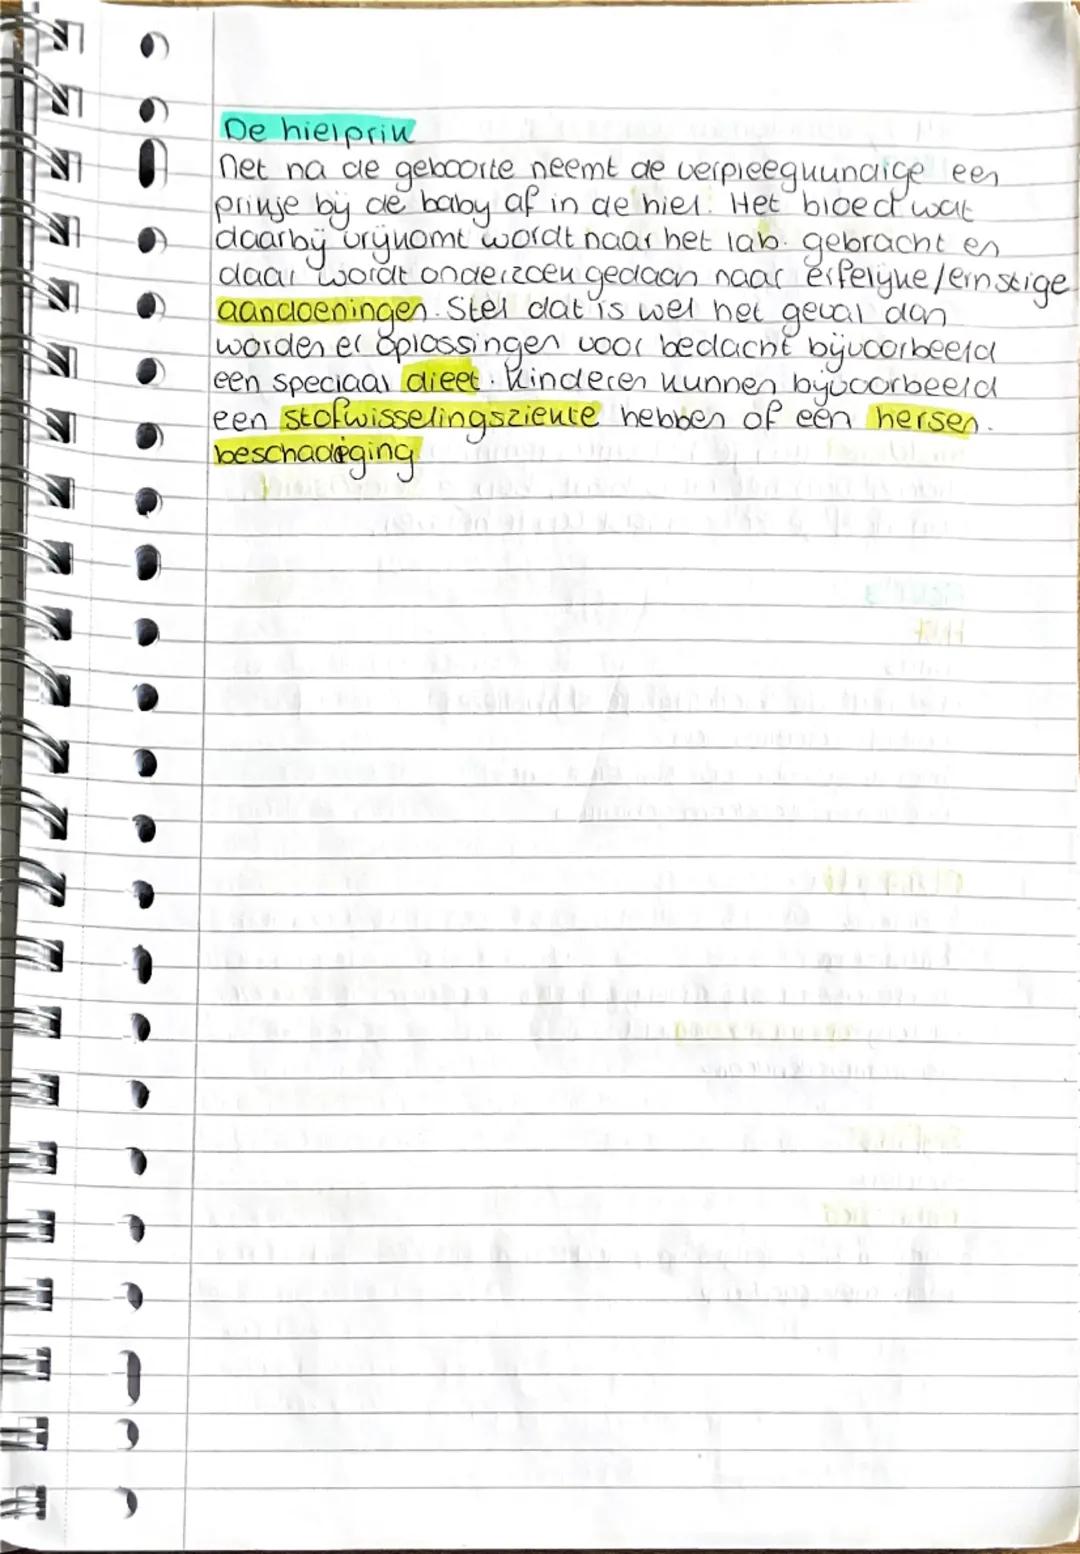 De hielprik
Net na de geboorte neemt de verpleegkundige een
prikje bij de baby af in de hiel. Het bloed wat
daarbij vrijkomt wordt naar het lab. gebracht en
daar wordt onderzoek gedaan naar erfelijke/ernstige
aandoeningen. Stel dat is wel het geval dan
worden er oplossingen voor bedacht bijvoorbeeld
een speciaal dieet. Kinderen kunnen bijvoorbeeld
een stofwisselingsziekte hebben of een hersen.
beschadiging